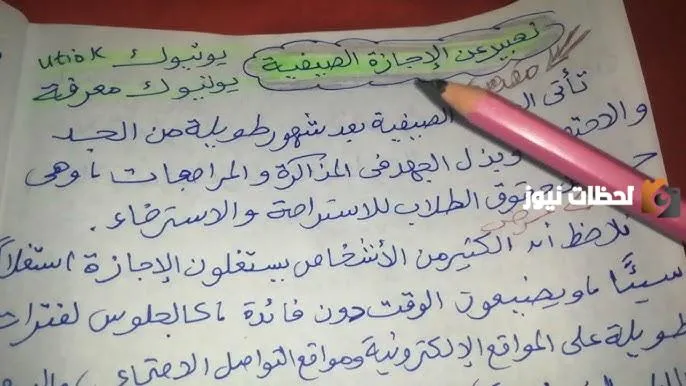 تعبير عن الإجازة الصيفية
يوتيوك utiok
يوتيوك معرفة
مقدمة
تأتي الصيفية بعد شهور طويلة من الجد
والاجتهاد وبذل الجهد في المذاكرة والمراجعات، وهي
حقوق الطلاب للاستراحة والاسترخاء.
لحظات نيوز
نلاحظ أن الكثير من الأشخاص يستغلون الإجازة استغلالاً
سيئًا، ويضيعون الوقت دون فائدة، كالجلوس لفترات
طويلة على المواقع الإلكترونية ومواقع التواصل الاجتماعي